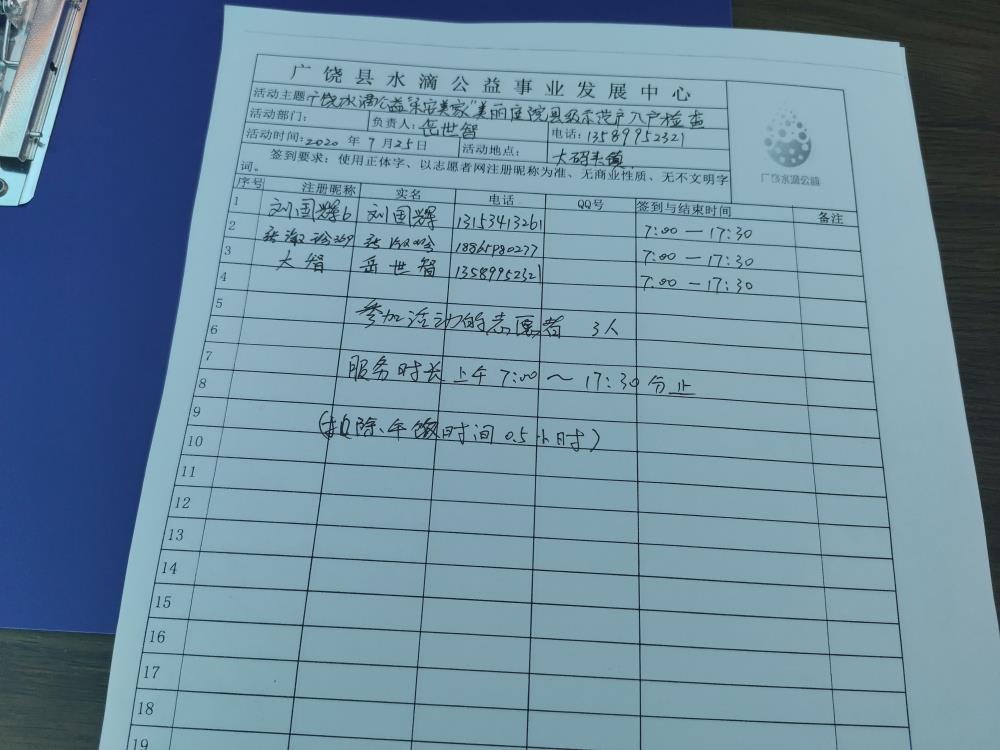 广饶县水滴公益事业发展中心
活动主题 广饶水滴公益"乐居美家"美丽庭院县级示范户入户检查
活动部门： 负责人：岳世智 电话：13589952321
活动时间：2020 年 7 月 25 日 活动地点： 大码头镇
签到要求：使用正体字、以志愿者网注册昵称为准、无商业性质、无不文明字
词。
广饶水滴公益
序号 注册昵称 实名 电话 QQ号 签到与结束时间 备注
1 刘国辉6 刘国辉 13153413261 7:00 — 17:30
2 18865980277 7:00 — 17:30
3 大智 岳世智 13589952321 7:00 — 17:30
4
5 参加活动的志愿者 3人
6
7 服务时长上午 7:00 ～ 17:30 分止
8
9 (扣除、午饭时间 0.5 小时)
10
11
12
13
14
15
16
17
18
19